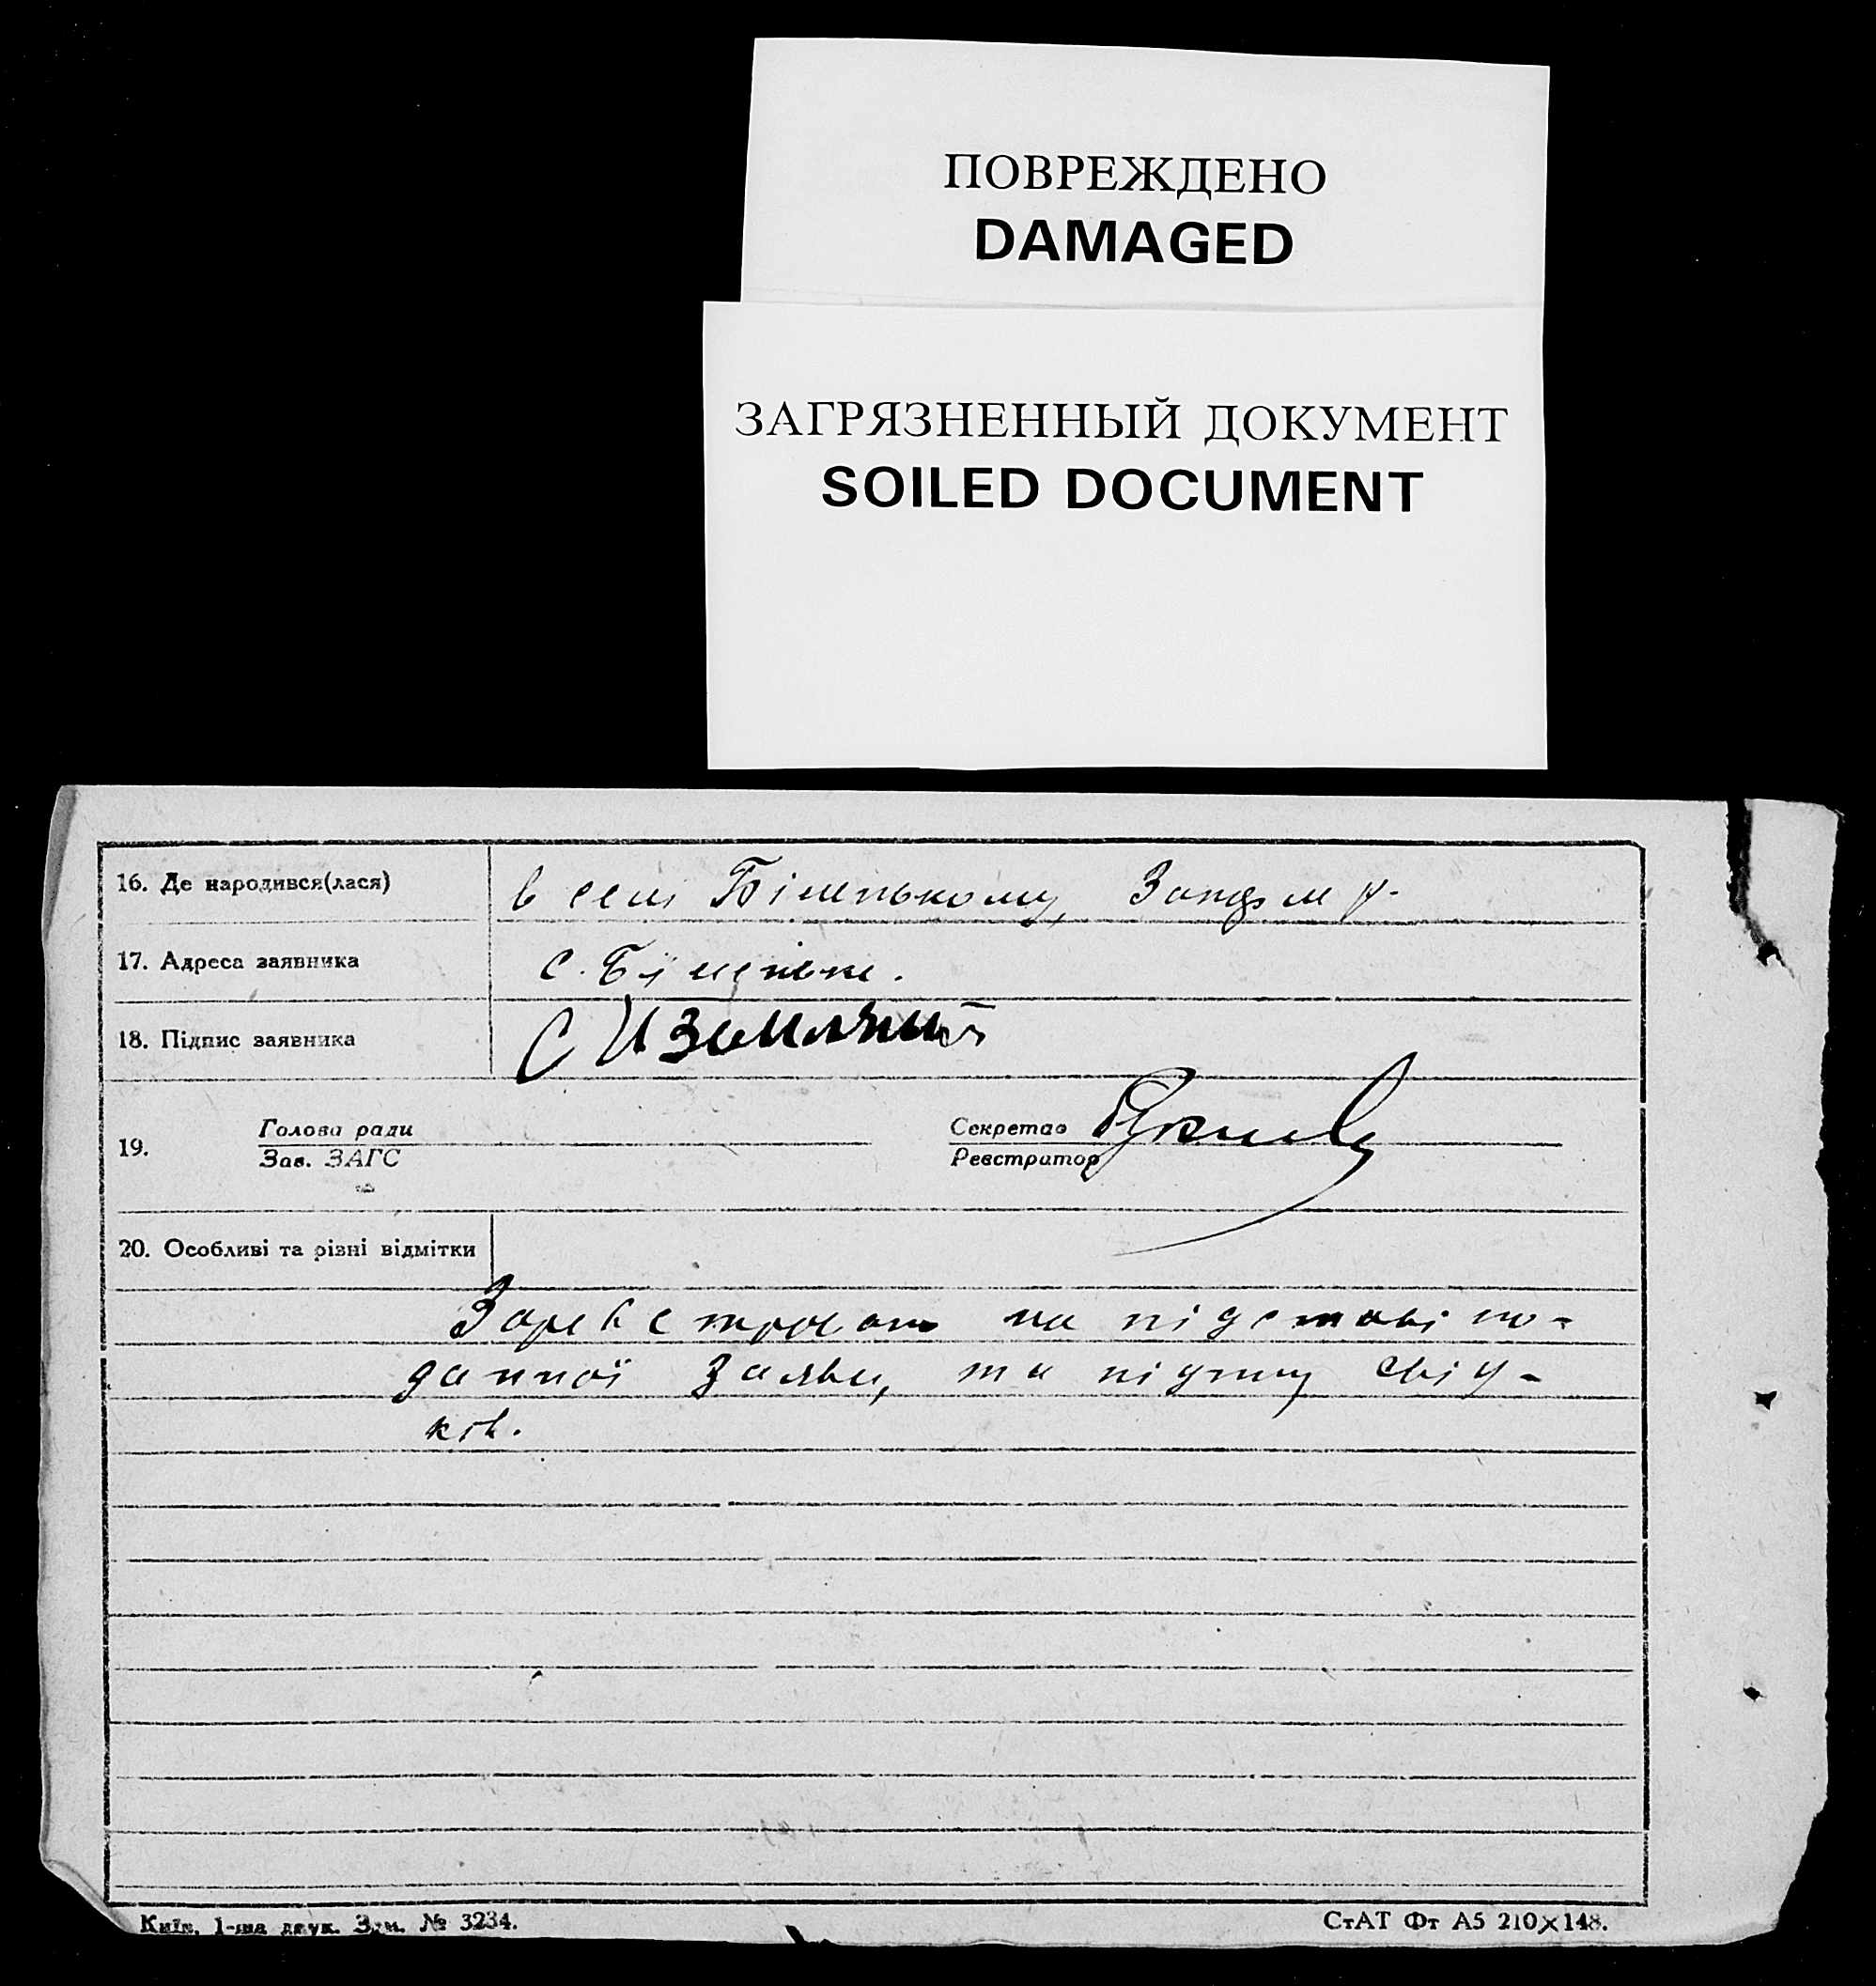 ПОВРЕЖДЕНО
DAMAGED
ЗАГРЯЗНЕННЫЙ ДОКУМЕНТ
SOILED DOCUMENT
16. Де народився(лася) в селі
17. Адреса заявника с.
18. Підпис заявника С
19. Голова ради Секретар
Зав. ЗАГС Реєстратор
20. Особливі та різні відмітки
на підставі по-
данної заяви, та підпису свід-
ків.
Київ, 1-ша друк. Зам. № 3234. СтАТ Фт А5 210×148.